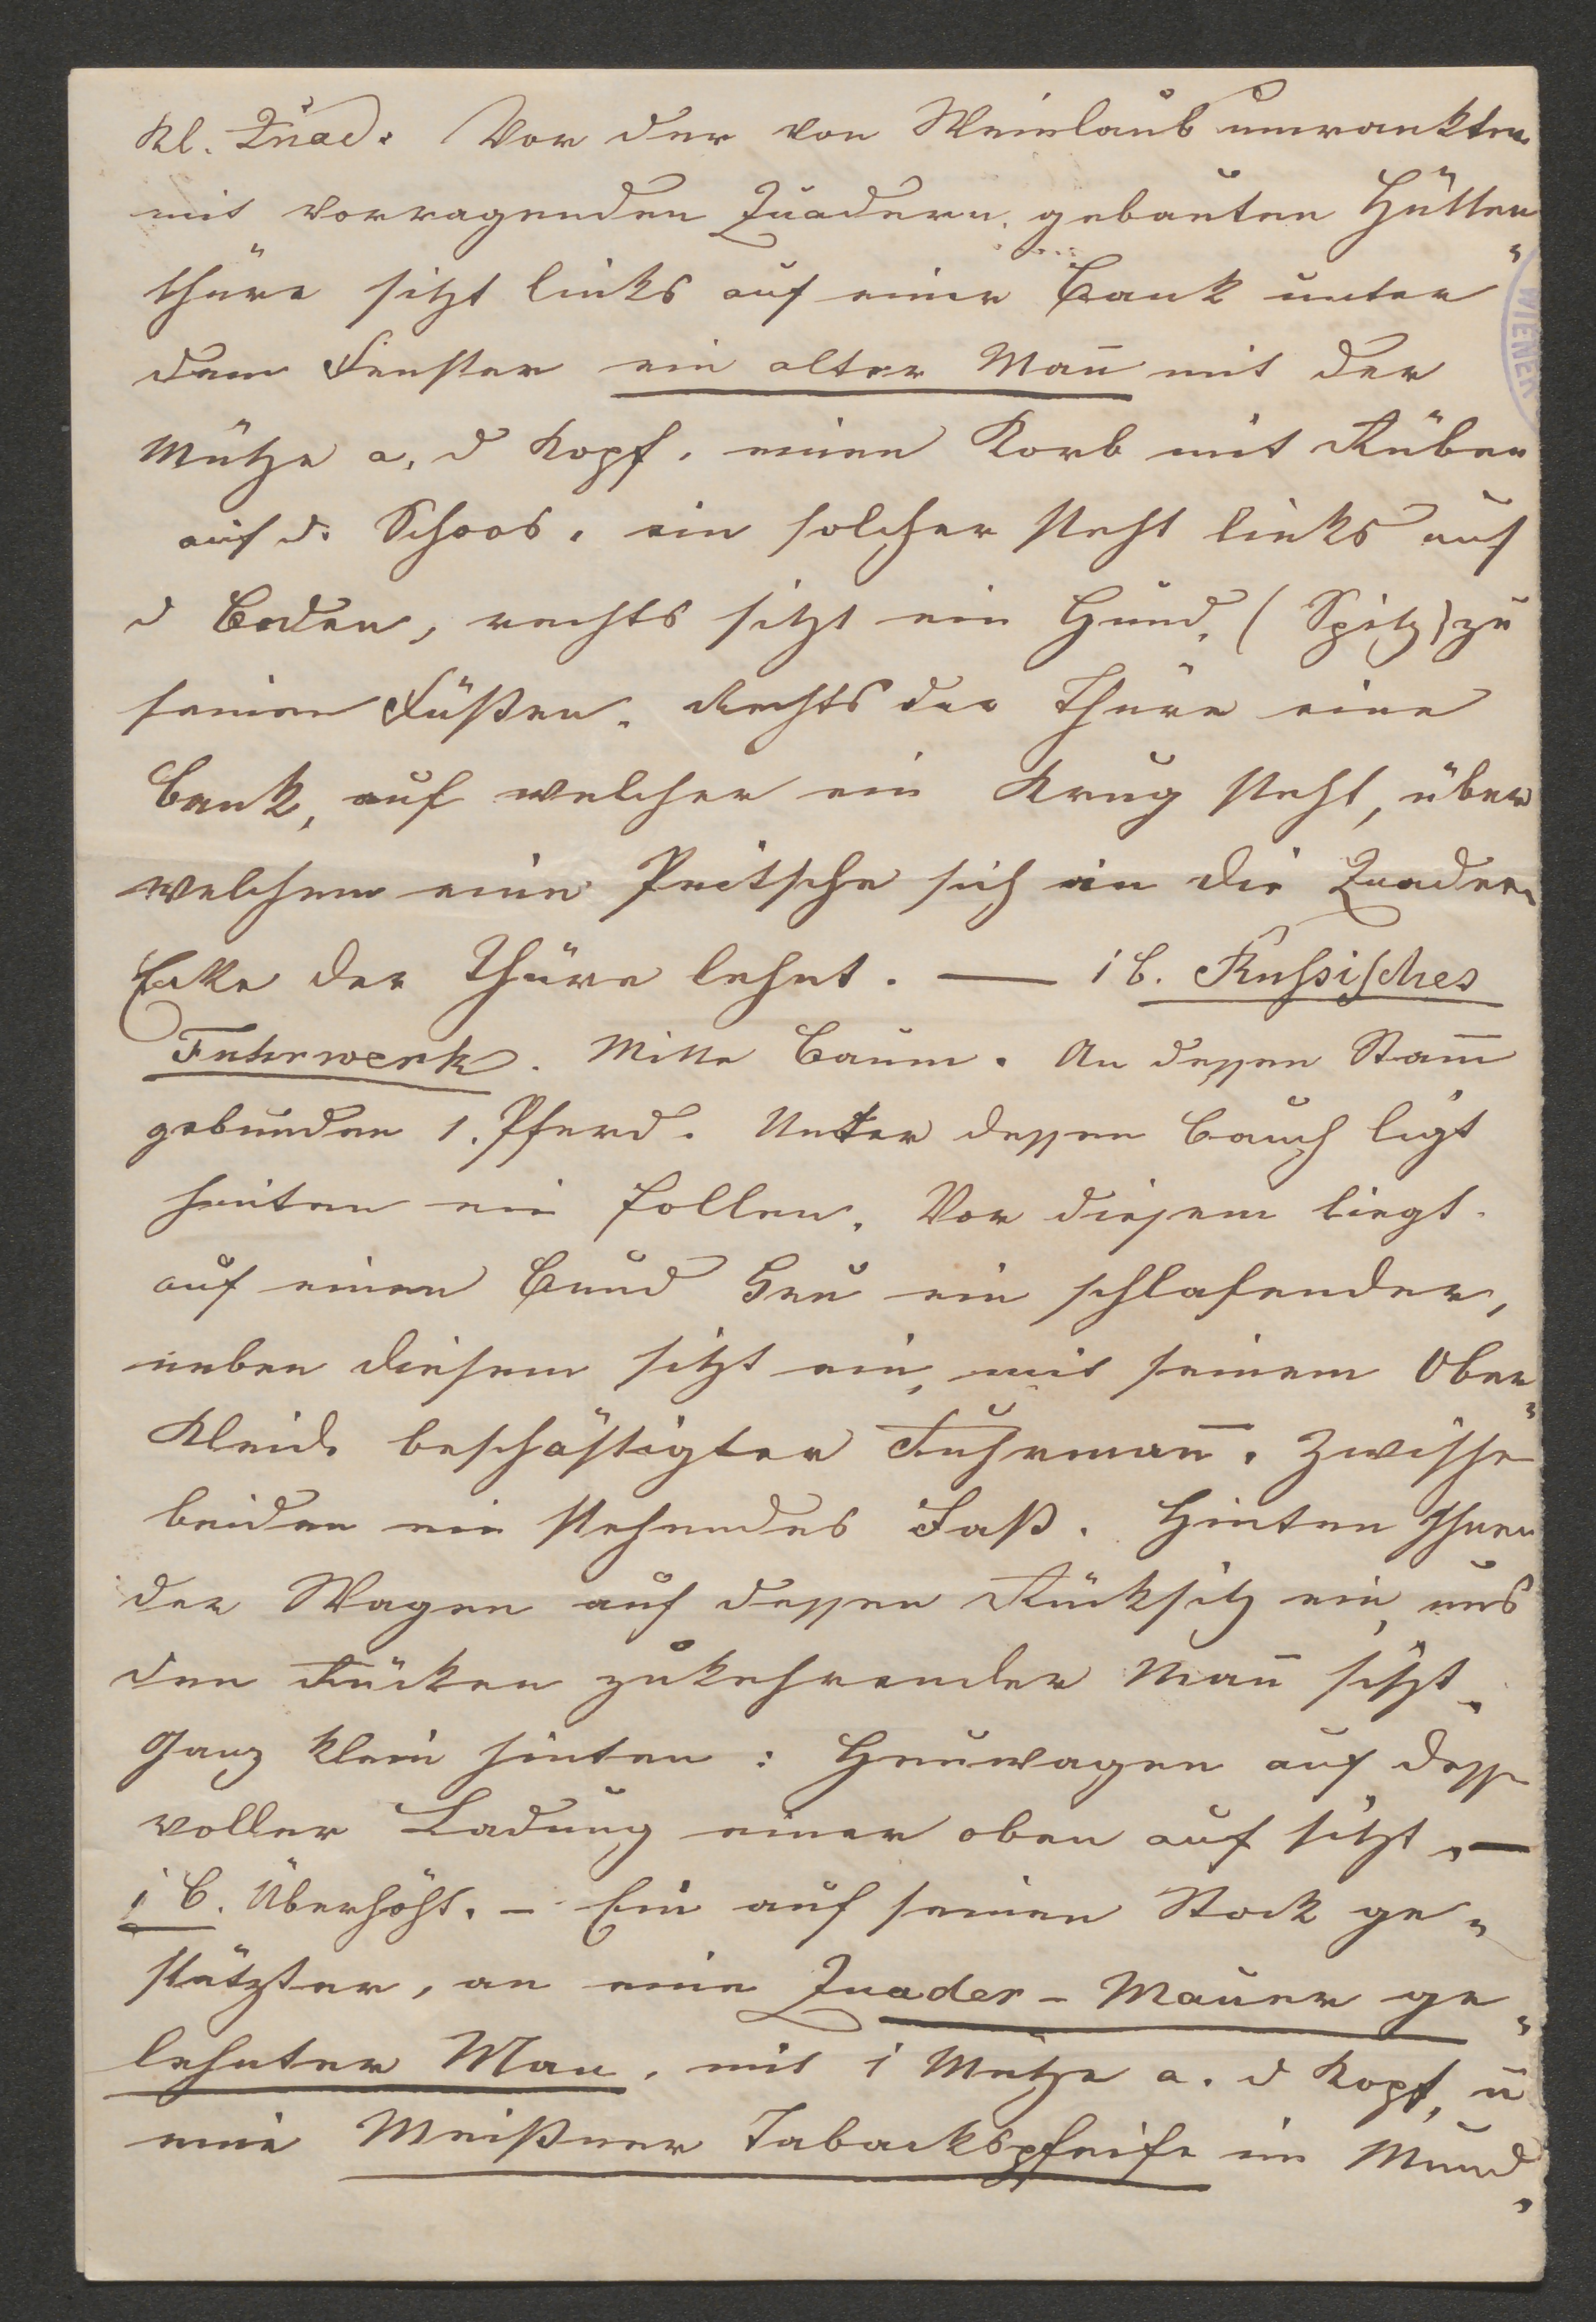 Kl. Quad. Vor der von Weinlaub umrankten
mit vorragenden Quadern gebauten Hütten„
thüre sitzt links auf einer Bank unter
dem Fenster ein alter Man̄ mit der
Mütze a. d Kopf. einen Korb mit Rüben
auf d. Schoos. ein solcher steht links auf
d Boden, rechts sitzt ein Hund, (Spitz) zu
seinen Füßen. Rechts der Thüre eine
Bank, auf welcher ein Krug steht, über
welchem eine Peitsche sich an die Quader„
Ecke der Thüre lehnt. — ib. Russisches
Fuhrwerk. Mitte Baum. An dessen Stam̄
gebunden 1. Pferd. Unter dessen Bauch ligt
hinten ein Follen. Vor diesem liegt
auf einen Bund Heu ein schlafender,
neben diesem sitzt ein, mit seinem Ober„
Kleide beschäftigter Fuhrman̄. Zwischen
beiden ein stehendes Faß. Hinten Ihnen
der Wagen auf dessen Rücksitz ein, uns
den Rücken zukehrender Man̄ sitzt.
Ganz klein hinten: Heuwagen auf dessen
voller Ladung einer oben auf sitzt. —
ib. Überhöht. – Ein auf seinen Stock ge„
stützter, an eine Quader-Mauer ge„
lehnter Man, mit 1 Mütze a. d Kopf, u̅
eine Meißner Tabackspfeife im Mund.
WIENER